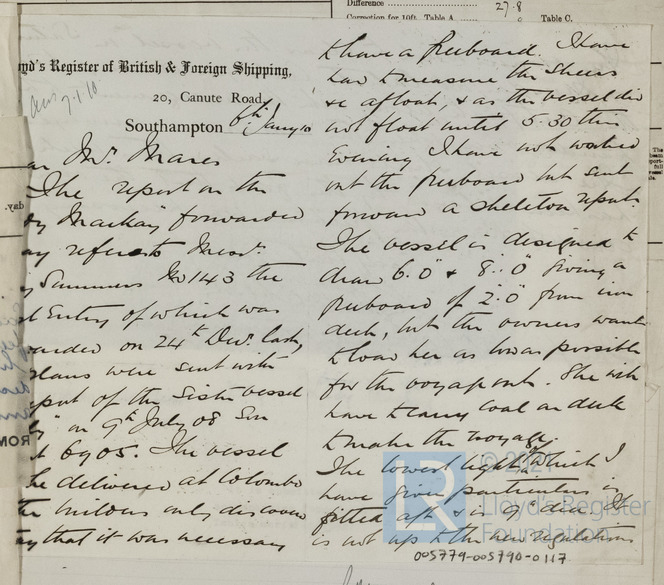 Difference
27.8
Correction for 10ft. Table A
Table C.
yd's Register of British & Foreign Shipping,
20, Canute Road,
Southampton 6th Jany 10
7.1.10
Mr. Mares
The report on the
Mackay forwarded
refers to Messrs.
Summers No 143 the
Entry of which was
on 24th Decr. last,
plans were sent with
of the Sister vessel
on 9th July 08 Sou
6905. The vessel
be delivered at Colombo
the builders only discover
that it was necessary
to have a freeboard. I have
had to measure the sheers
&c afloat, & as the vessel did
not float until 5.30 this
Evening I have not worked
out the freeboard but sent
forward a skeleton report.
The vessel is designed to
draw 6.0" & 8.0" giving a
freeboard of 2.0" from iron
deck, but the owners want
to load her as low as possible
for the voyage out. She will
have to carry coal on deck
to make the voyage.
The lowest light which I
have given particulars is
fitted aft & is 9" dia. It
is not up to the new regulations
© 2021
Lloyd's Register
Foundation
LR
005779-005790-0117
ROM